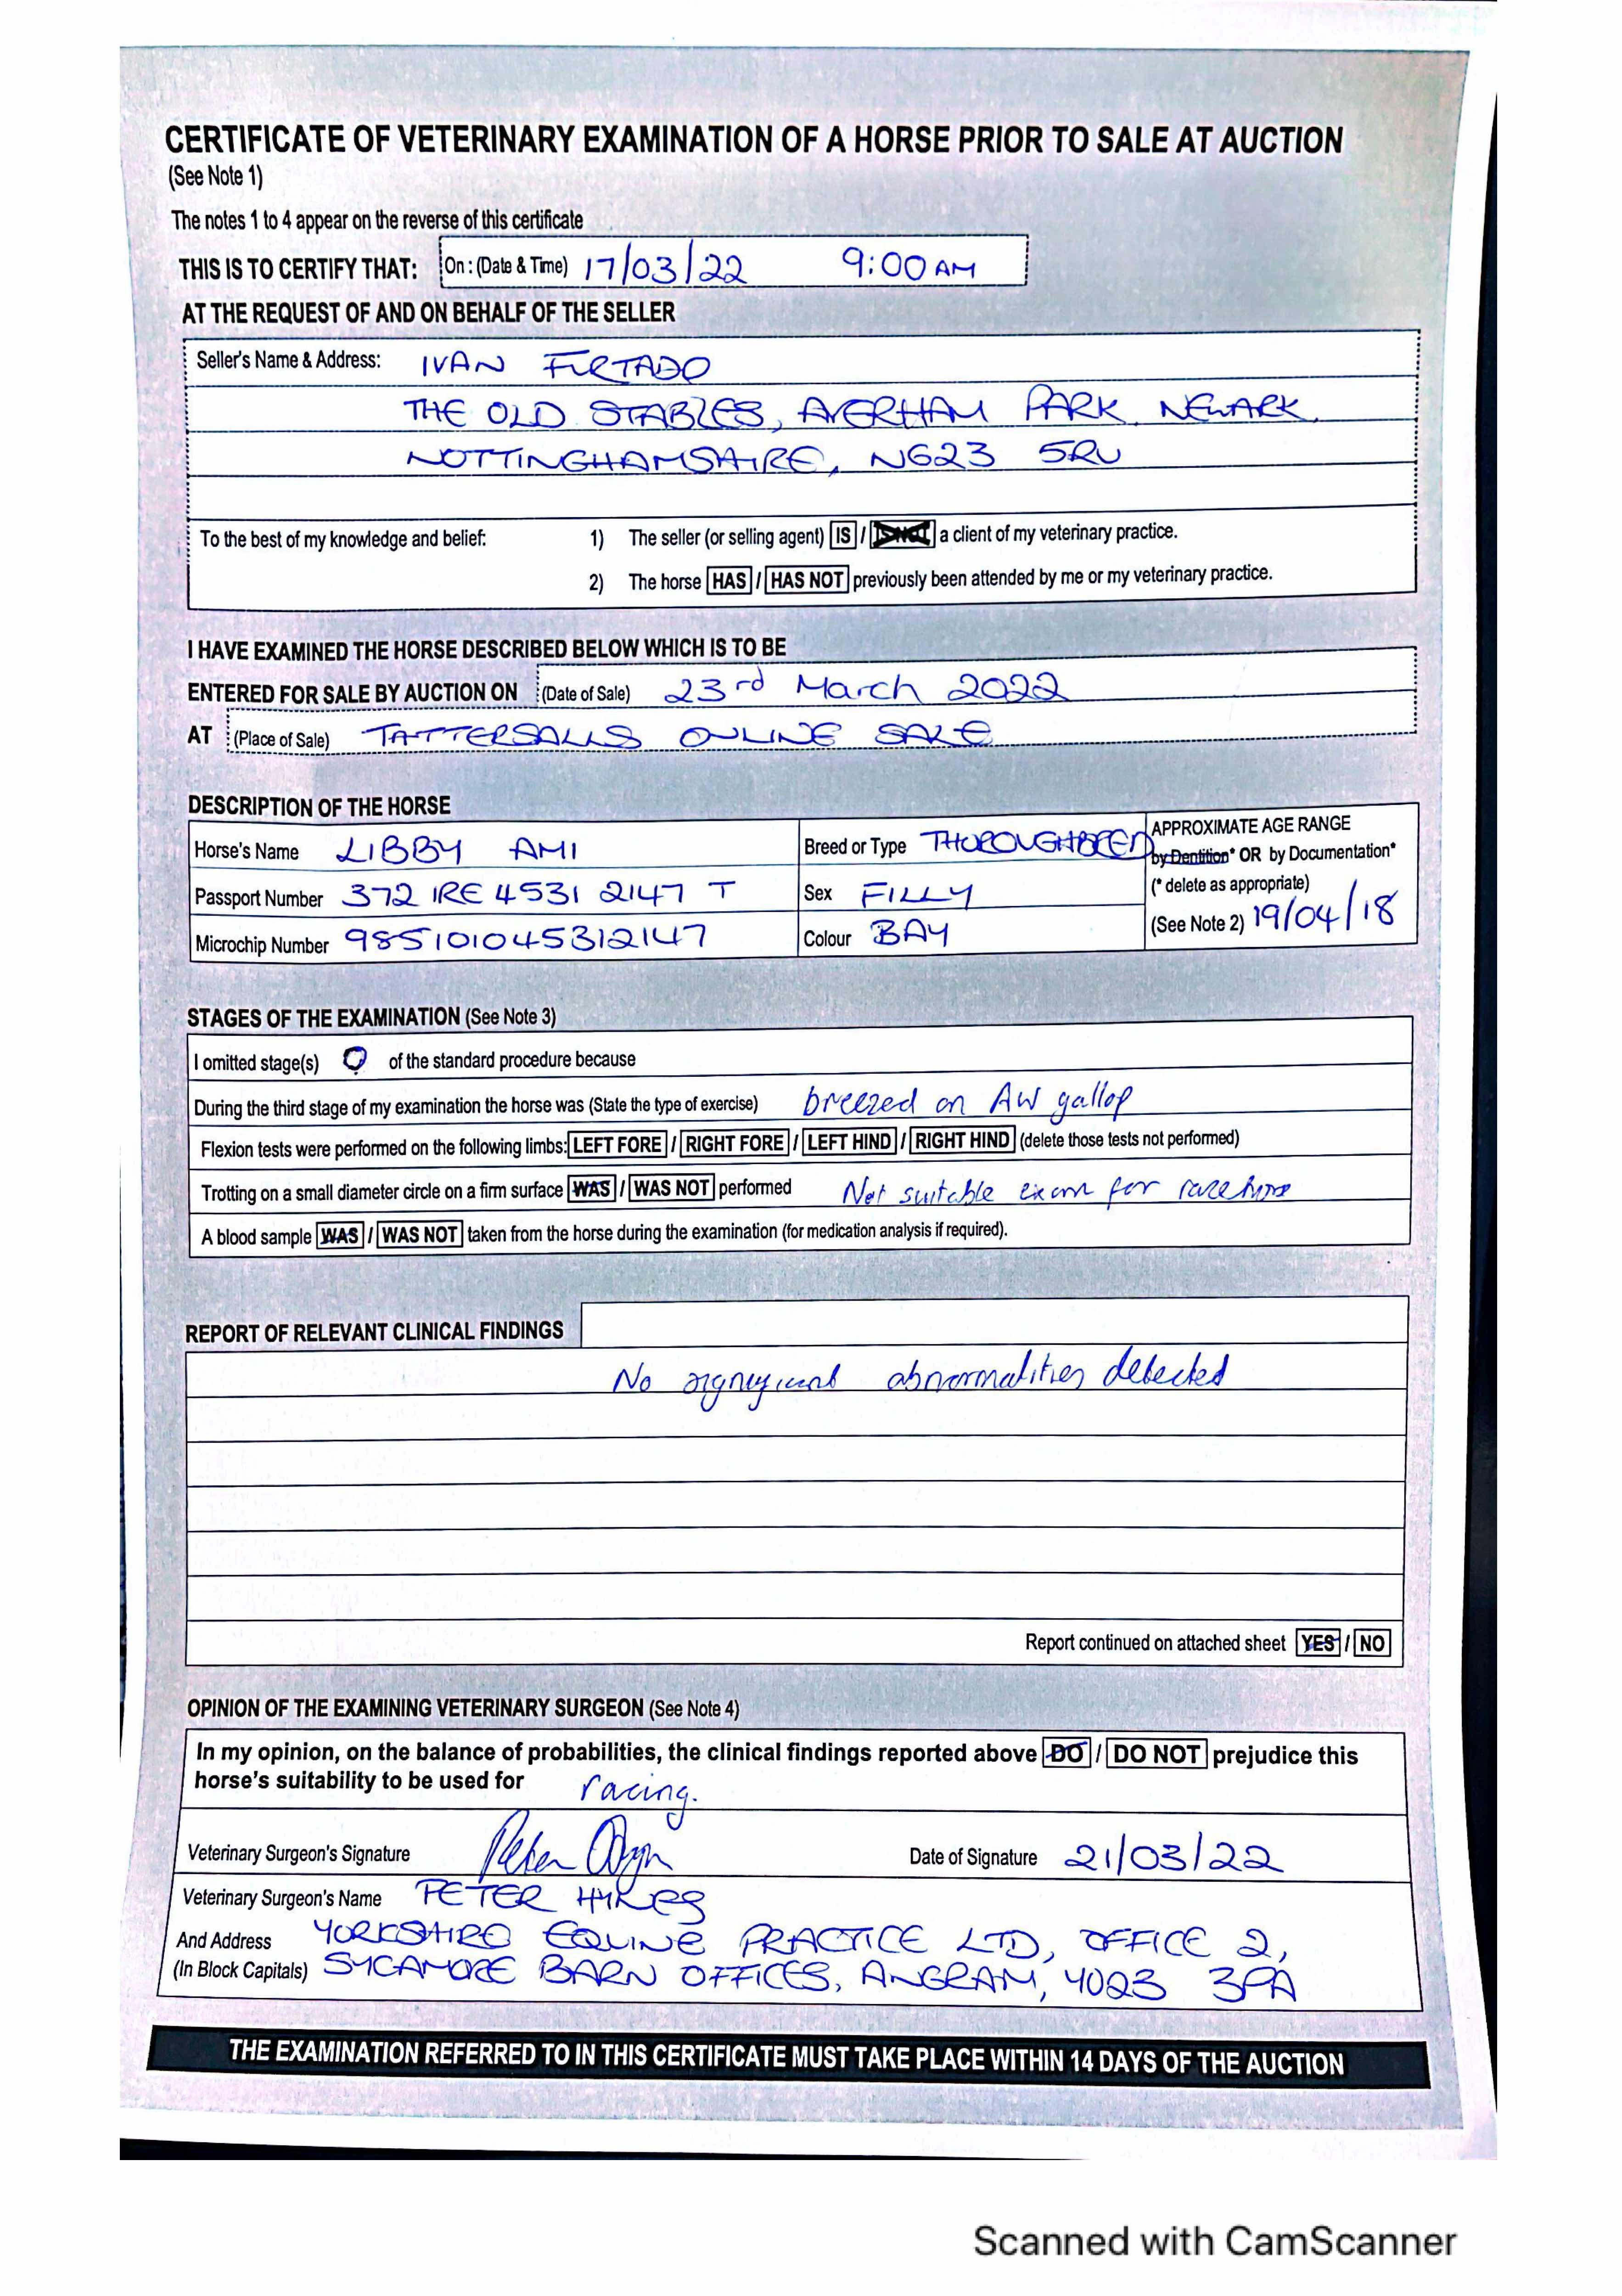 CERTIFICATE OF VETERINARY EXAMINATION OF A HORSE PRIOR TO SALE AT AUCTION
(See Note 1)
The notes 1 to 4 appear on the reverse of this certificate
THIS IS TO CERTIFY THAT: On : (Date & Time) 17/03/22 9:00 AM
AT THE REQUEST OF AND ON BEHALF OF THE SELLER
Seller's Name & Address: IVAN FURTADO
THE OLD STABLES, AVERHAM PARK, NEWARK,
NOTTINGHAMSHIRE, NG23 5RU
To the best of my knowledge and belief: 1) The seller (or selling agent) IS / IS NOT a client of my veterinary practice.
2) The horse HAS / HAS NOT previously been attended by me or my veterinary practice.
I HAVE EXAMINED THE HORSE DESCRIBED BELOW WHICH IS TO BE
ENTERED FOR SALE BY AUCTION ON (Date of Sale) 23rd March 2022
AT (Place of Sale) TATTERSALLS ONLINE SALE
DESCRIPTION OF THE HORSE
Horse's Name LIBBY AMI Breed or Type THOROUGHBRED APPROXIMATE AGE RANGE
by Dentition* OR by Documentation*
Passport Number 372 IRE 4531 2147 T Sex FILLY (* delete as appropriate)
Microchip Number 985101045312147 Colour BAY (See Note 2) 19/04/18
STAGES OF THE EXAMINATION (See Note 3)
I omitted stage(s) of the standard procedure because
During the third stage of my examination the horse was (State the type of exercise) breezed on AW gallop
Flexion tests were performed on the following limbs: LEFT FORE / RIGHT FORE / LEFT HIND / RIGHT HIND (delete those tests not performed)
Trotting on a small diameter circle on a firm surface WAS / WAS NOT performed Not suitable exam for racehorse
A blood sample WAS / WAS NOT taken from the horse during the examination (for medication analysis if required).
REPORT OF RELEVANT CLINICAL FINDINGS
No significant abnormalities detected
Report continued on attached sheet YES / NO
OPINION OF THE EXAMINING VETERINARY SURGEON (See Note 4)
In my opinion, on the balance of probabilities, the clinical findings reported above DO / DO NOT prejudice this
horse's suitability to be used for racing.
Veterinary Surgeon's Signature Date of Signature 21/03/22
Veterinary Surgeon's Name PETER
And Address YORKSHIRE EQUINE PRACTICE LTD, OFFICE 2,
(In Block Capitals) SYCAMORE BARN OFFICES, ANGRAM, YO23 3PA
THE EXAMINATION REFERRED TO IN THIS CERTIFICATE MUST TAKE PLACE WITHIN 14 DAYS OF THE AUCTION
Scanned with CamScanner